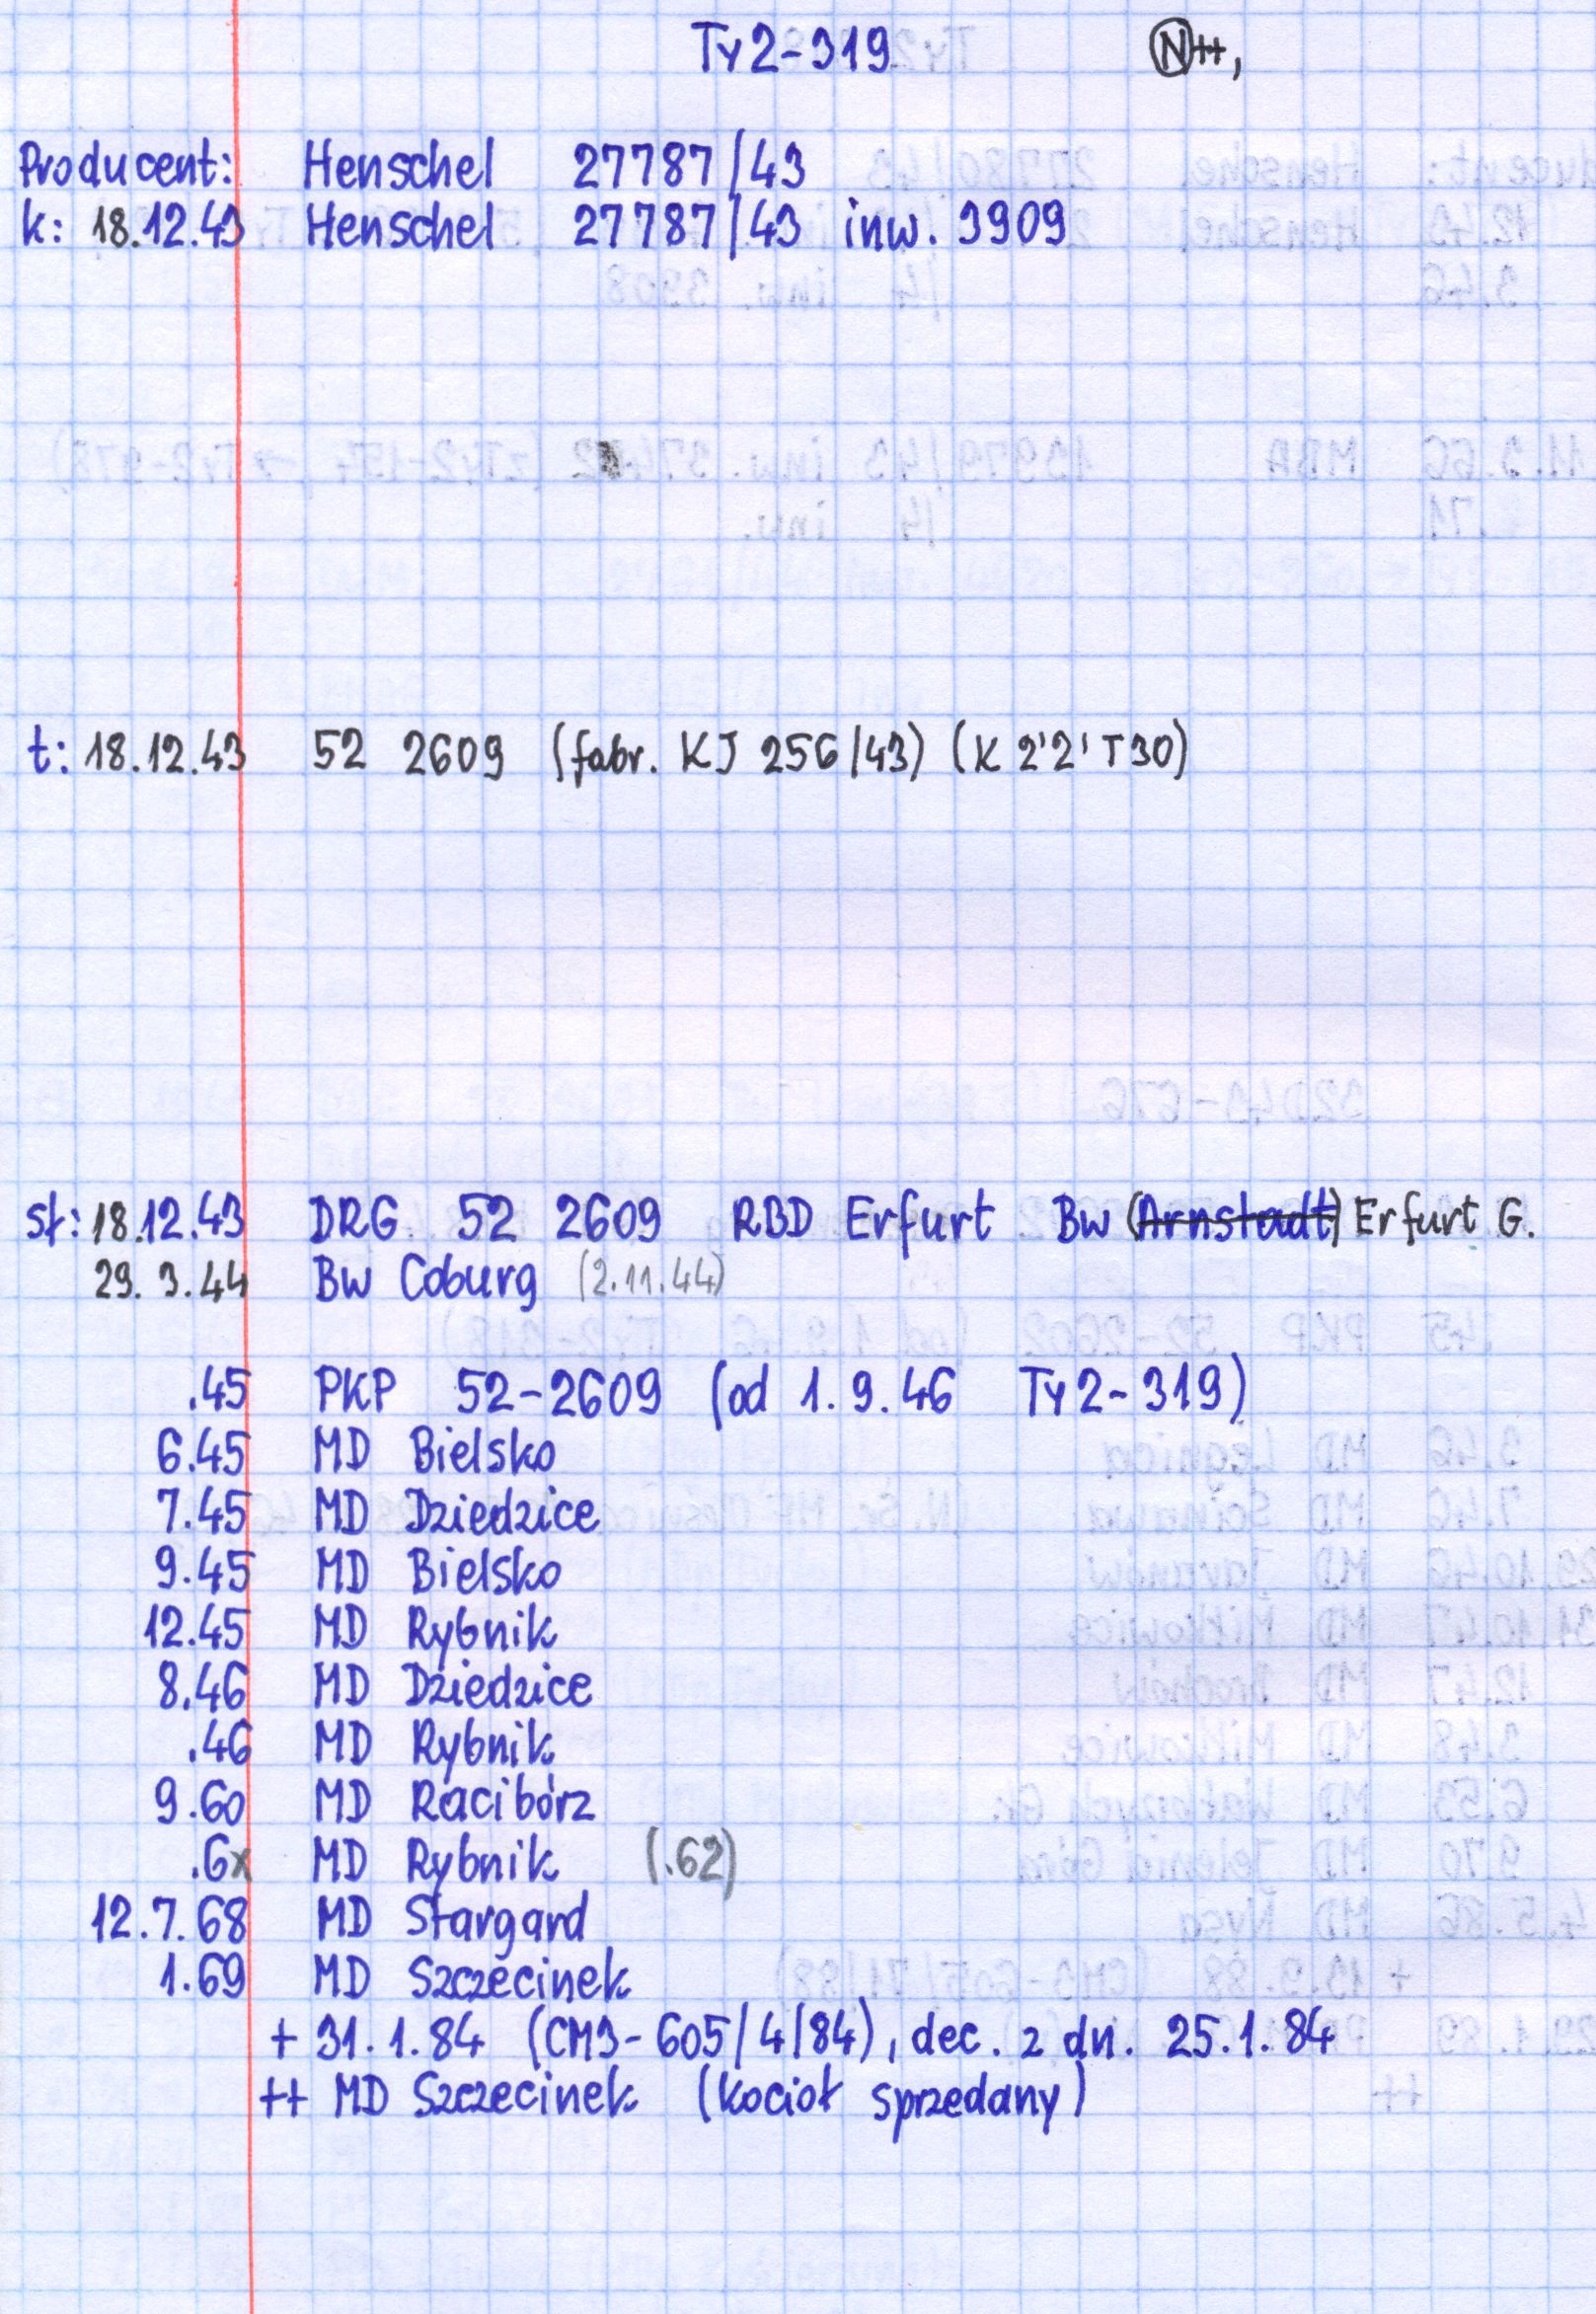 Ty2-319 Ⓝ++,
Producent: Henschel 27787/43
k: 18.12.43 Henschel 27787/43 inw. 3909
t: 18.12.43 52 2609 (fabr. KJ 256/43) (K 2'2' T30)
st: 18.12.43 DRG 52 2609 RBD Erfurt Bw (Arnstadt) Erfurt G.
29.3.44 Bw Coburg (2.11.44)
.45 PKP 52-2609 (od 1.9.46 Ty2-319)
6.45 MD Bielsko
7.45 MD Dziedzice
9.45 MD Bielsko
12.45 MD Rybnik
8.46 MD Dziedzice
.46 MD Rybnik
9.60 MD Racibórz
.6x MD Rybnik (.62)
12.7.68 MD Stargard
1.69 MD Szczecinek
+ 31.1.84 (CM3-605/4/84), dec. z dn. 25.1.84
++ MD Szczecinek (kocioł sprzedany)